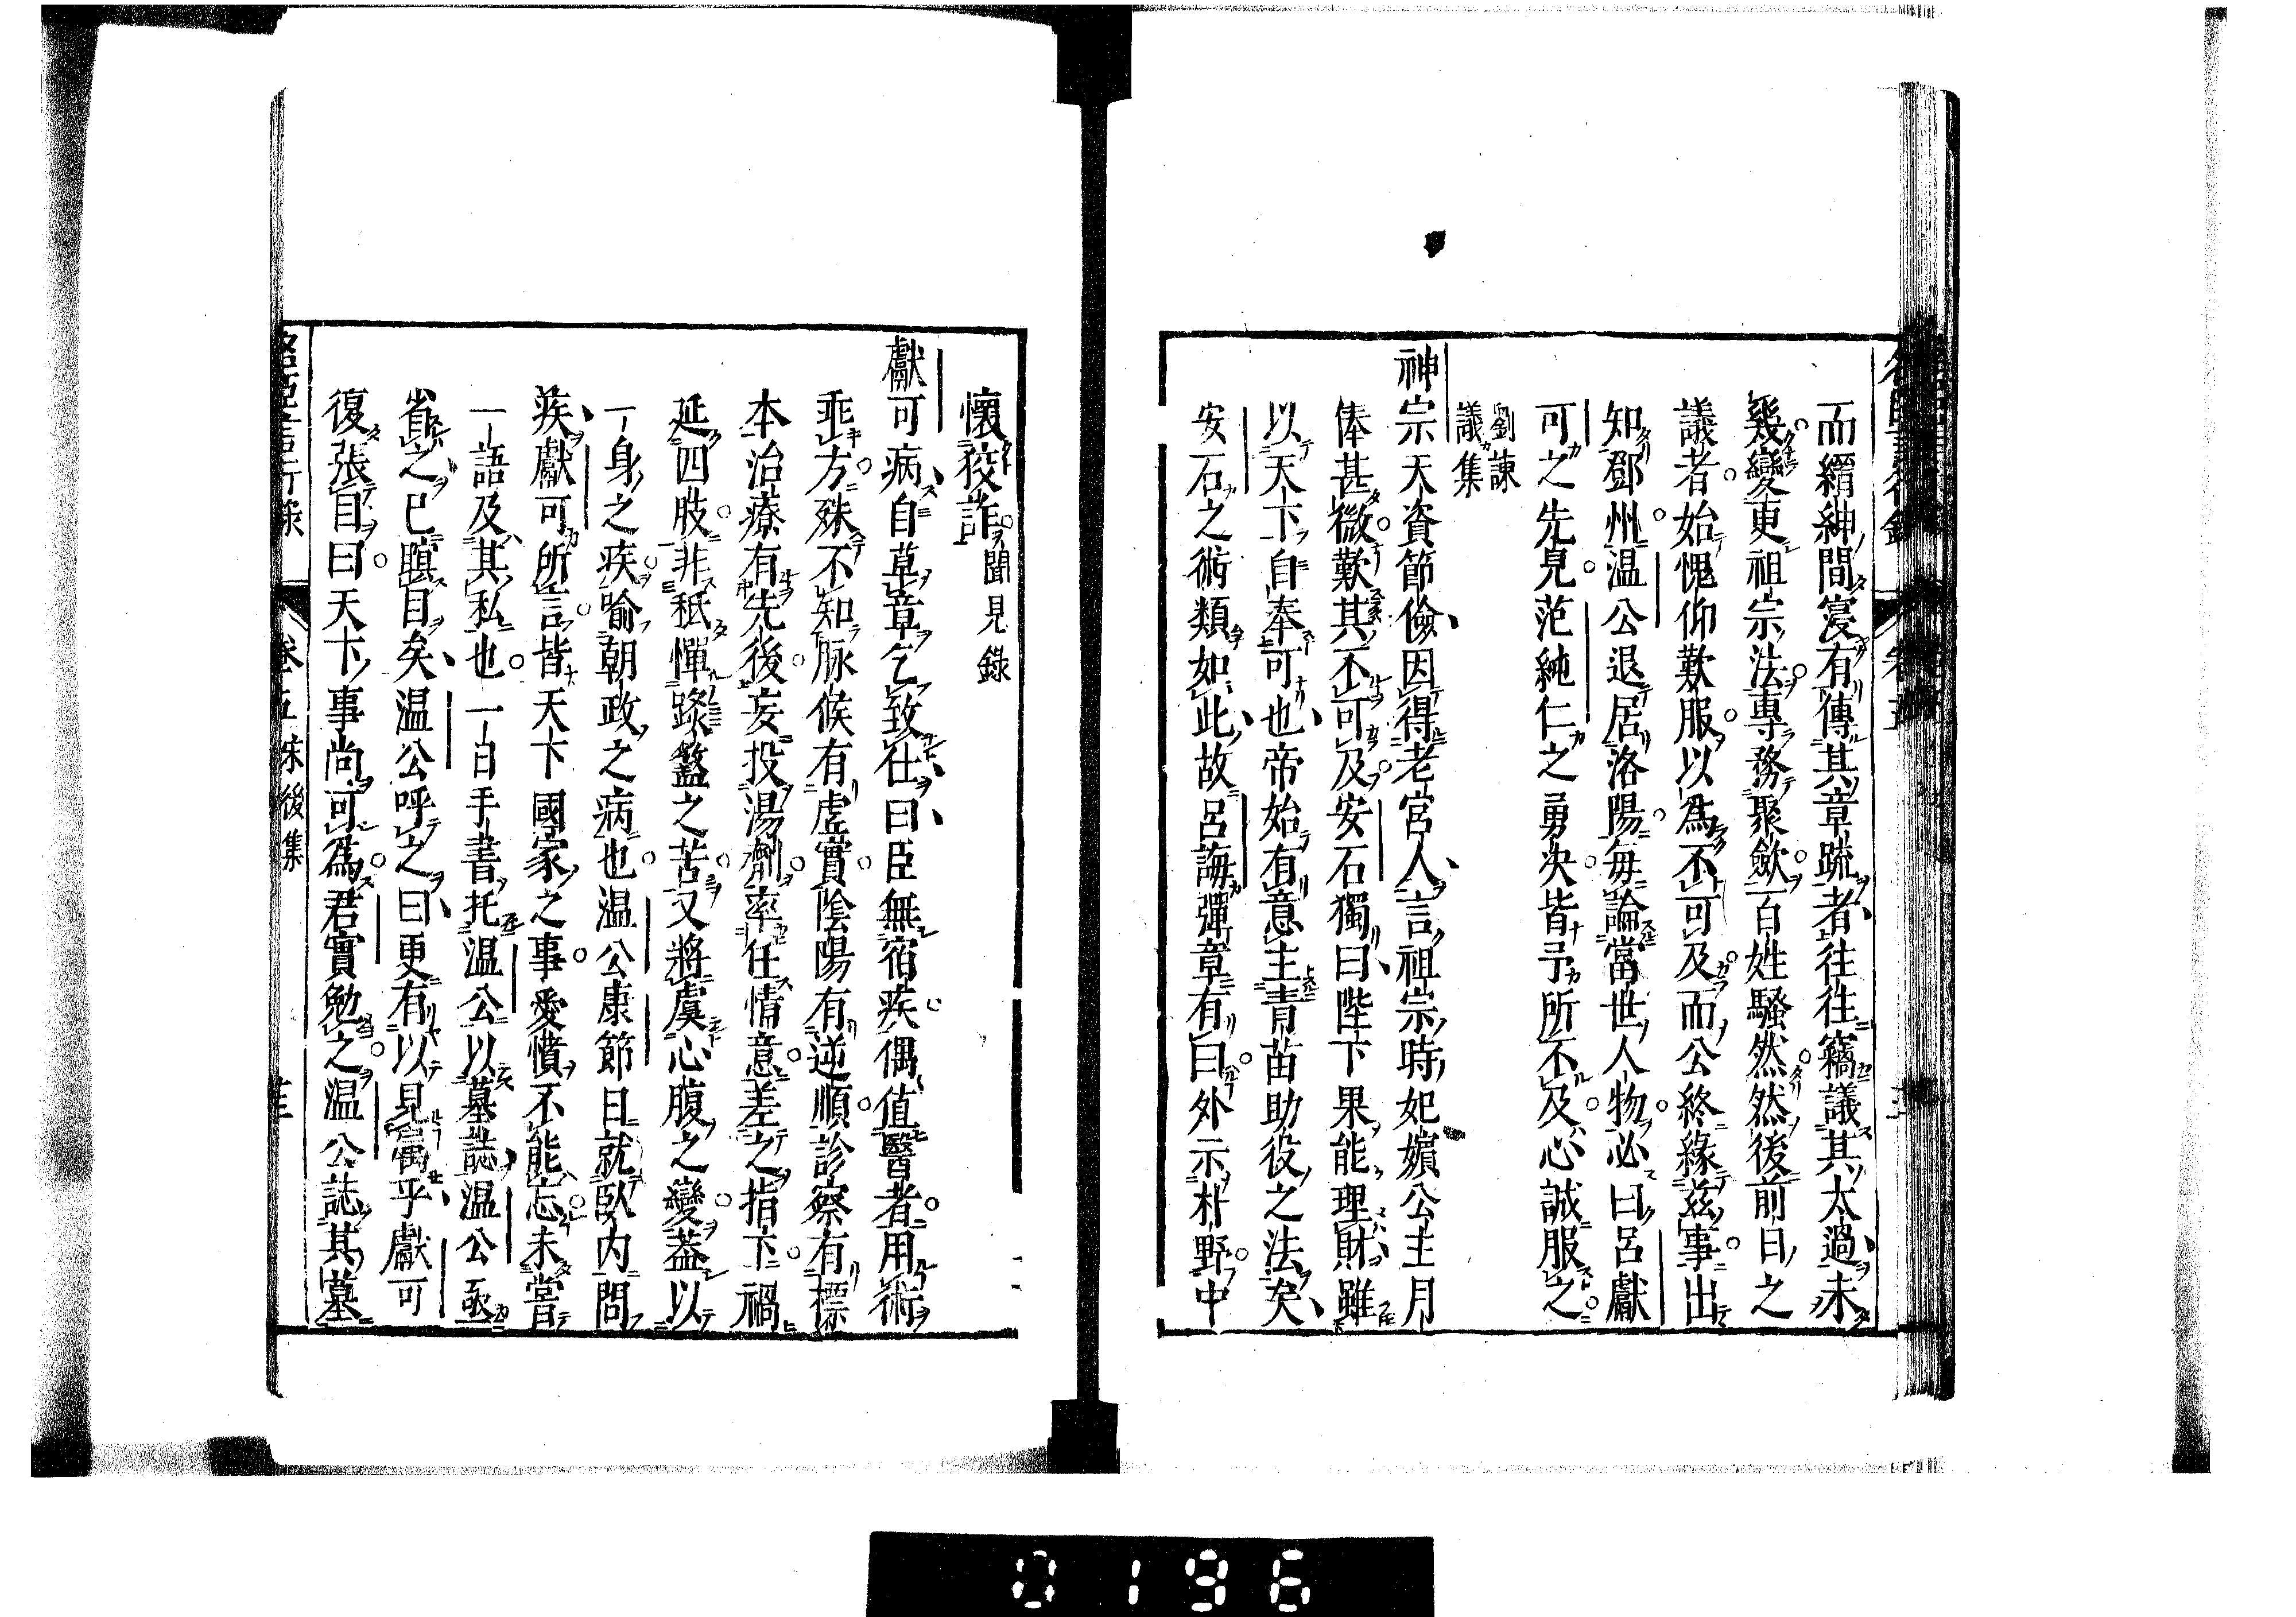 而縉紳間寖有傳其章疏者往往竊議其太過未
幾變更祖宗法專務聚歛百姓騷然然後前日之
議者始愧仰歎服以爲不可及而公終緣茲事出
知鄧州温公退居洛陽每論當世人物必曰呂獻
可之先見范純仁之勇决皆予所不及心誠服之
劉諫
議集
神宗天資節儉因得老宮人言祖宗時妃嬪公主月
俸甚微歎其不可及安石獨曰陛下果能理財雖
以天下自奉可也帝始有意主青苗助役之法矣
安石之術類如此故呂誨彈章有曰外示朴野中
懷狡詐聞見錄
獻可病自草章乞致仕曰臣無宿疾偶値醫者用術
乖方殊不知脉候有虛實陰陽有逆順診察有標
本治療有先後妄投湯劑率任情意差之指下禍
延四肢非秪憚䠠盭之苦又將虞心腹之變葢以
一身之疾喻朝政之病也温公康節日就臥内問
疾獻可所言皆天下國家之事憂憤不能忘未嘗
一語及其私也一日手書托温公以墓誌温公亟
省之已瞑目矣温公呼之曰更有以見属乎獻可
復張目曰天下事尚可爲君實勉之温公誌其墓
卷五 宋後集